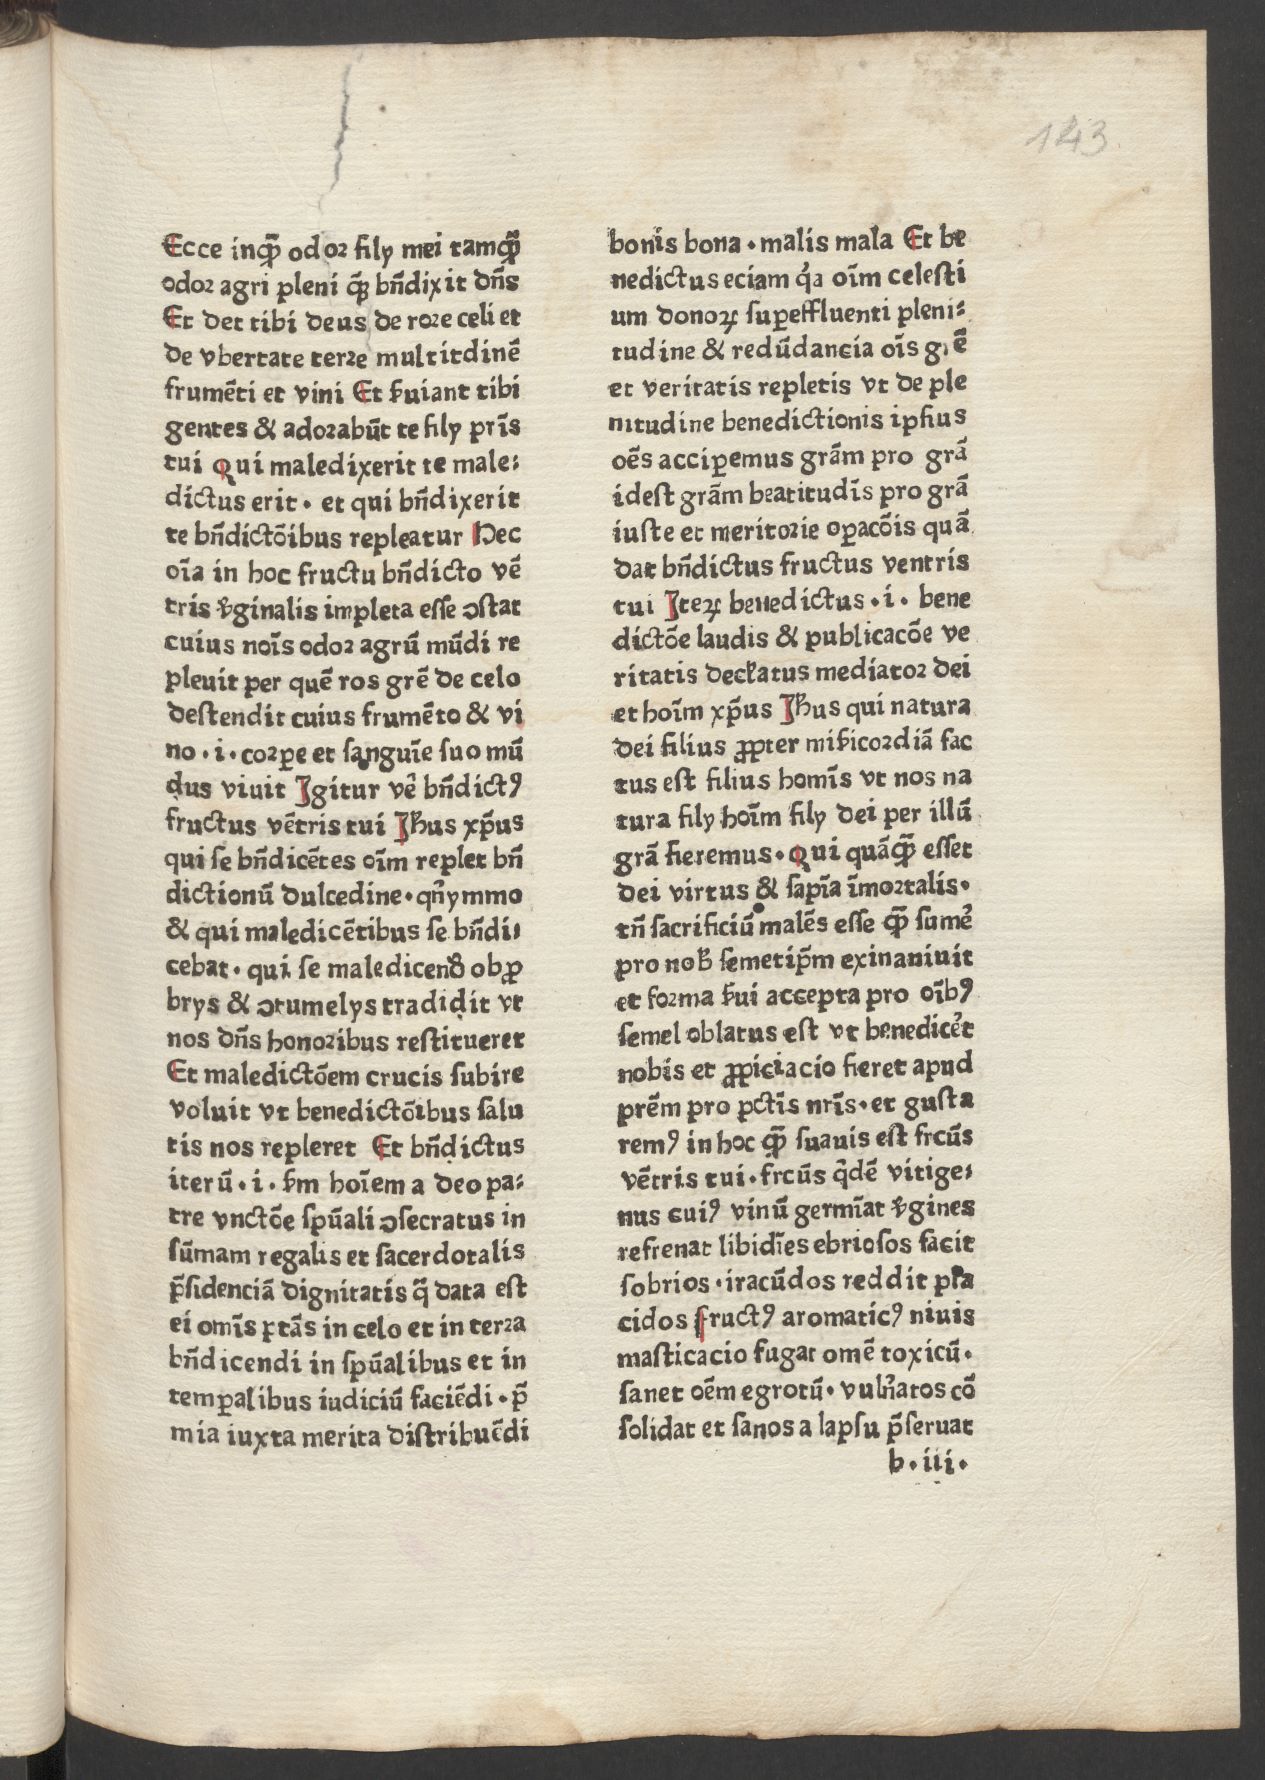 143
Ecce inqͫ odoꝛ fily mei tamqͫ
odoꝛ agri pleni qͫ bn̄dixit dn̄s
Et det tibi deus de roꝛe celi et
de vbertate terꝛe multitdinē
frumēti et vini Et ẜuiant tibi
gentes & adoꝛabūt te fily pr̄is
tui Qui maledixerit te male⸗
dictus erit · et qui bn̄dixerit
te bn̄dictōibus repleatur Hec
oīa in hoc fructu bn̄dicto vē
tris v̓ginalis impleta esse ↄstat
cuius nōis odoꝛ agrū mūdi re
pleuit per quē ros grē de celo
destendit cuius frumēto & vi
no · i · coꝛꝑe et ſanguīe ſuo mū
dus viuit Igitur vē bn̄dictꝰ
fructus vētris tui Jħus xp̄us
qui ſe bn̄dicētes oīm replet bn̄
dictionū dulcedine · qn̄ymmo
& qui maledicētibus ſe bn̄di⸗
cebat · qui ſe maledicendo obꝓ
brys & ↄtumelys tradidit vt
nos dn̄s honoꝛibus reſtitueret
Et maledictōem crucis ſubire
voluit vt benedictōibus ſalu
tis nos repleret Et bn̄dictus
iterū · i · ẜm hoīem a deo pa⸗
tre vnctōe ſpūali ↄſecratus in
ſūmam regalis et ſacerdotalis
p̄ſidenciā dignitatis q̄ data eſt
ei omīs ptās in celo et in terꝛa
bn̄dicendi in ſpūalibus et in
temꝑalibus iudiciū faciēdi · p̄
mia iuxta merita diſtribuēdi
bonis bona · malis mala Et be
nedictus eciam q̓a oīm celeſti
um donoꝝ ſuꝑeffluenti pleni⸗
tudine & redūdancia oīs grē
et veritatis repletis vt de ple
nitudine benedictionis ipſius
oēs acciꝑemus grām pro grā
ideſt grām beatitudīs pro grā
iuſte et meritoꝛie oꝑacōis quā
dat bn̄dictus fructus ventris
tui Iteꝝ benedictus · i · bene
dictōe laudis & publicacōe ve
ritatis decłatus mediatoꝛ dei
et hoīm xp̄us Jħus qui natura
dei filius ꝓpter miẜicoꝛdiā fac
tus eſt filius homīs vt nos na
tura fily hoīm fily dei per illū
grā fieremus · Qui quāqͫ esset
dei virtus & ſapīa īmoꝛtalis ·
tn̄ ſacrificiū malēs esse qͫ ſume᷒
pro noƀ ſemetip̄m exinaniuit
et foꝛma ẜui accepta pro oībꝰ
ſemel oblatus eſt vt benedice᷒t
nobis et ꝓpiciacio fieret apud
prēm pro pctīs nrīs · et guſta
remꝰ in hoc qͫ ſuauis eſt frcūs
vētris tui · frcūs q̓dē vitige⸗
nus cuiꝰ vinū germīat v̓gines
refrenat libidīes ebrioſos facit
ſobrios · iracūdos reddit pla
cidos Fructꝰ aromaticꝰ niuis
maſticacio fugat omē toxicū ·
ſanet oēm egrotū · vuln̓atos cō
ſolidat et ſanos a lapſu p̄ſeruat
b · iii ·